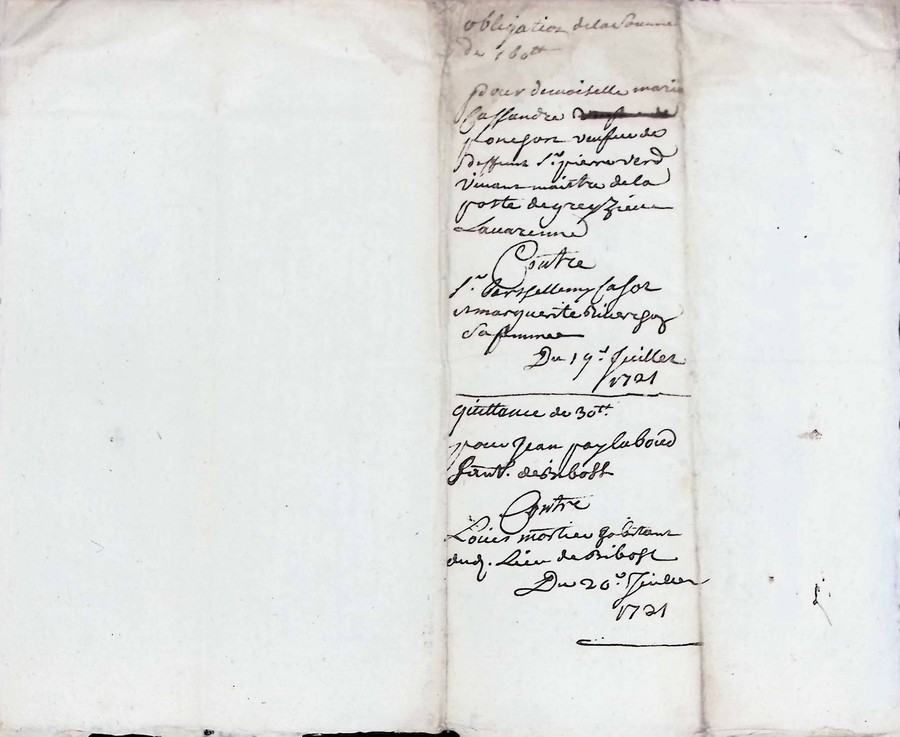 obligation de la Somme
de 160tt
pour demoiselle marie
Cassandre
ponchon veufue de
deffunt Sr. pierre verd
Viuant maistre de la
poste de grezieu
Lauarenne
Contre
Sr. Barthellemy
et marguerite
Sa femme
Du 19e. Juillet
1721
quittance de 30tt
pour Jean
hant. de Bibost
Contre
Louis mortier habitant
dud. Lieu de Bibost
Du 20e. Juillet
1721